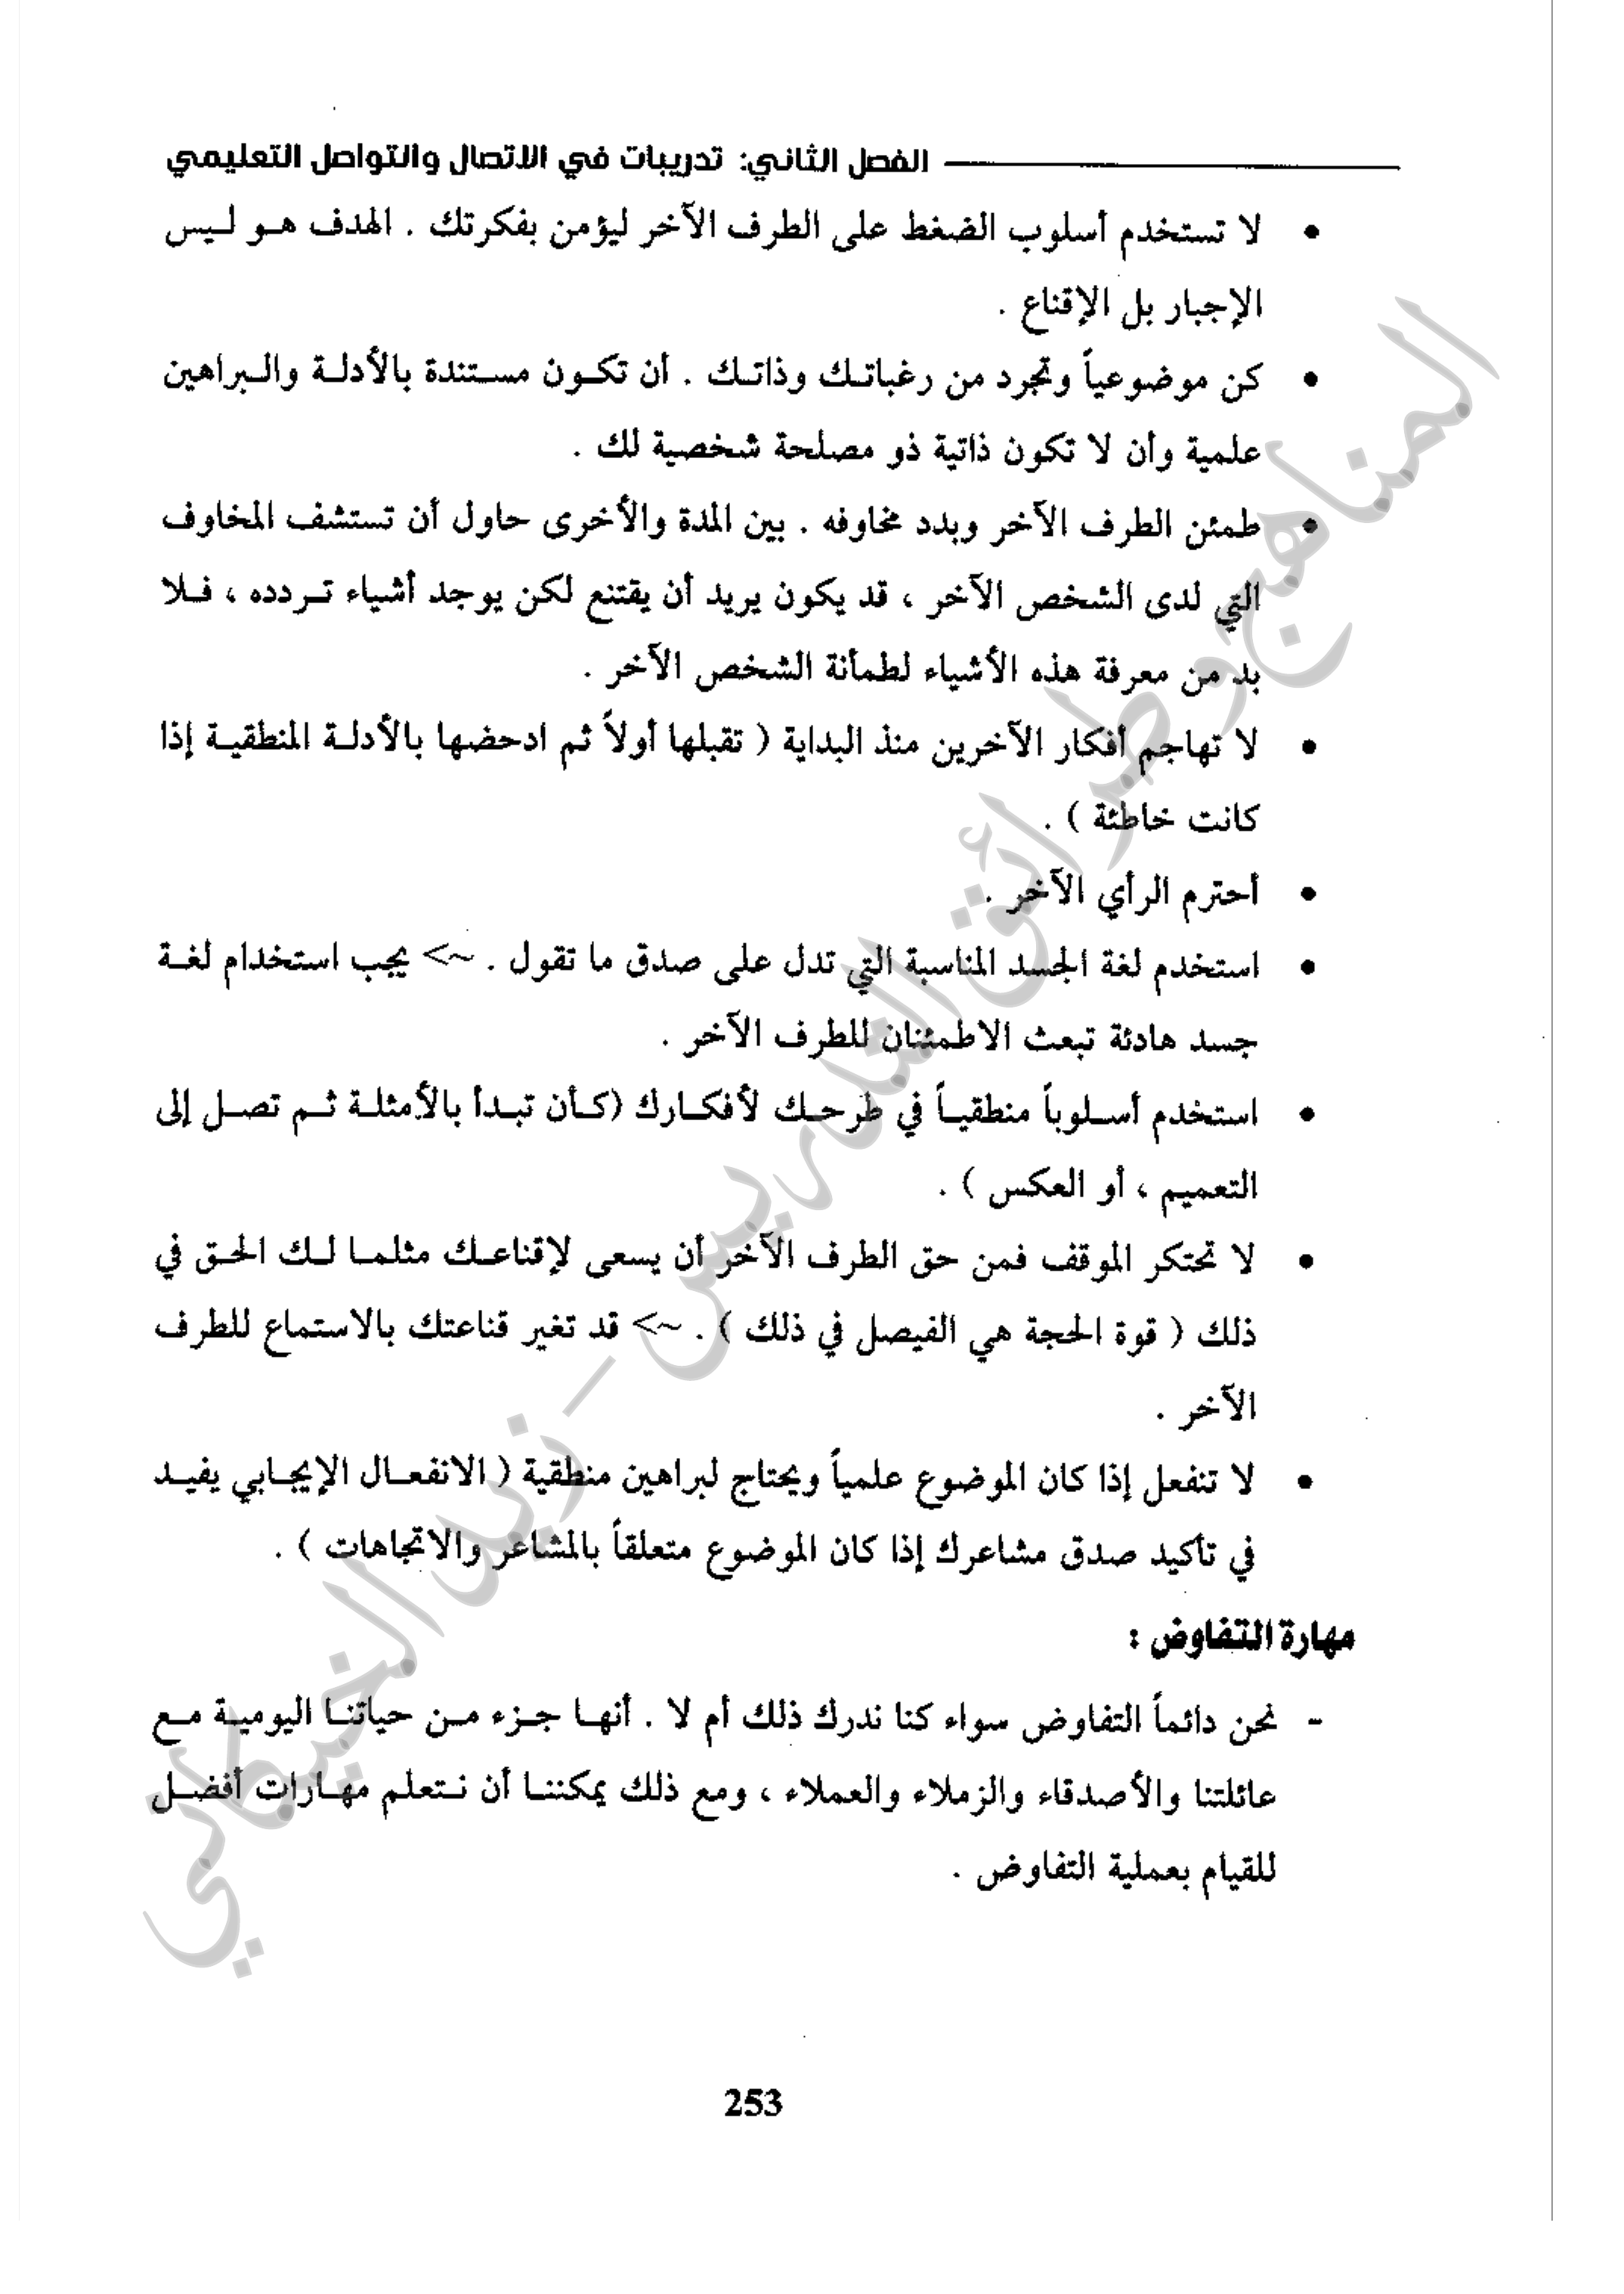 الفصل الثاني: تدريبات في الاتصال والتواصل التعليمي
• لا تستخدم أسلوب الضغط على الطرف الآخر ليؤمن بفكرتك . الهدف هو ليس
الإجبار بل الإقناع .
• كن موضوعياً وتجرد من رغباتك وذاتك . أن تكون مستندة بالأدلة والبراهين
علمية وأن لا تكون ذاتية ذو مصلحة شخصية لك .
• طمئن الطرف الآخر وبدد مخاوفه . بين المدة والأخرى حاول أن تستشف المخاوف
التي لدى الشخص الآخر ، قد يكون يريد أن يقتنع لكن يوجد أشياء تردده ، فلا
بد من معرفة هذه الأشياء لطمأنة الشخص الآخر .
• لا تهاجم أفكار الآخرين منذ البداية ( تقبلها أولاً ثم ادحضها بالأدلة المنطقية إذا
كانت خاطئة ) .
• أحترم الرأي الآخر .
• استخدم لغة الجسد المناسبة التي تدل على صدق ما تقول . ~> يجب استخدام لغة
جسد هادئة تبعث الاطمئنان للطرف الآخر .
• استخدم أسلوباً منطقياً في طرحك لأفكارك (كأن تبدأ بالأمثلة ثم تصل إلى
التعميم ، أو العكس ) .
• لا تحتكر الموقف فمن حق الطرف الآخر أن يسعى لإقناعك مثلما لك الحق في
ذلك ( قوة الحجة هي الفيصل في ذلك ) . ~> قد تغير قناعتك بالاستماع للطرف
الآخر .
• لا تنفعل إذا كان الموضوع علمياً ويحتاج لبراهين منطقية ( الانفعال الإيجابي يفيد
في تأكيد صدق مشاعرك إذا كان الموضوع متعلقاً بالمشاعر والاتجاهات ) .
مهارة التفاوض :
- نحن دائماً التفاوض سواء كنا ندرك ذلك أم لا . أنها جزء من حياتنا اليومية مع
عائلتنا والأصدقاء والزملاء والعملاء ، ومع ذلك يمكننا أن نتعلم مهارات أفضل
للقيام بعملية التفاوض .
253
المناهج وطرائق التدريس - زيد الخيكاني